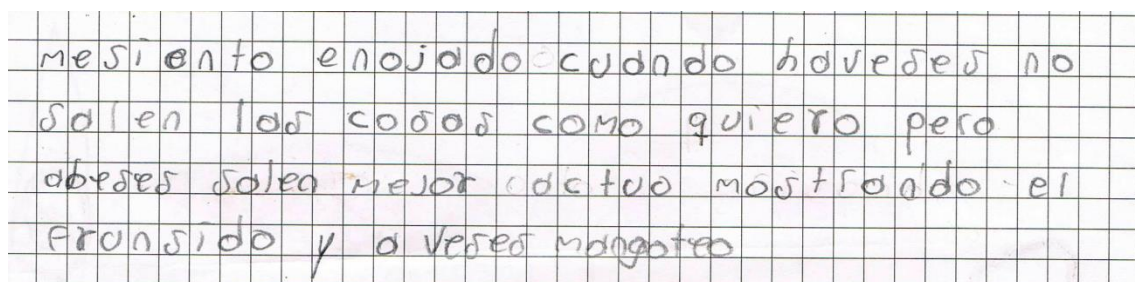 mesiento enojado cuando haveses no
salen las cosas como quiero pero
abeses salen mejor actuo mostrando el
frunsido y a veses mangoteo